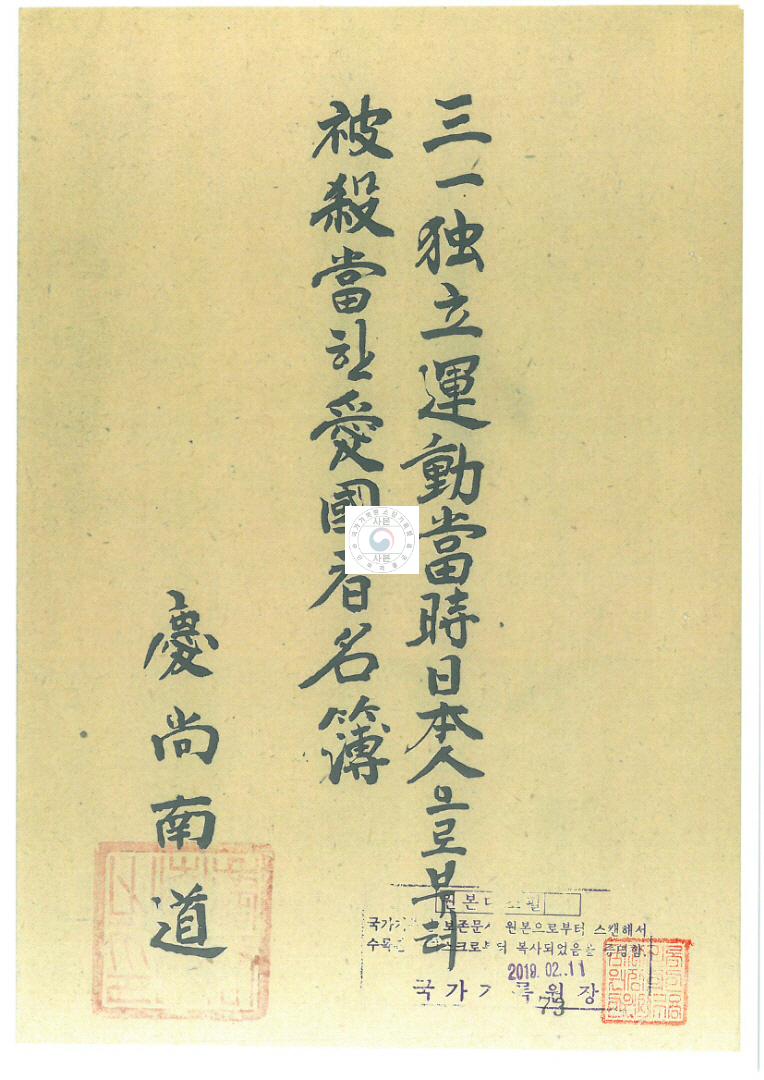 三一独立運動當時日本人으로부터
被殺當한愛國者名簿
慶尚南道
사본
사본
원본대
필
국가
보존문
원본으로부터 스캔해서
수록
크로
터 복사되었음을 증명함.
2019. 02. 11
국가
록원장
73